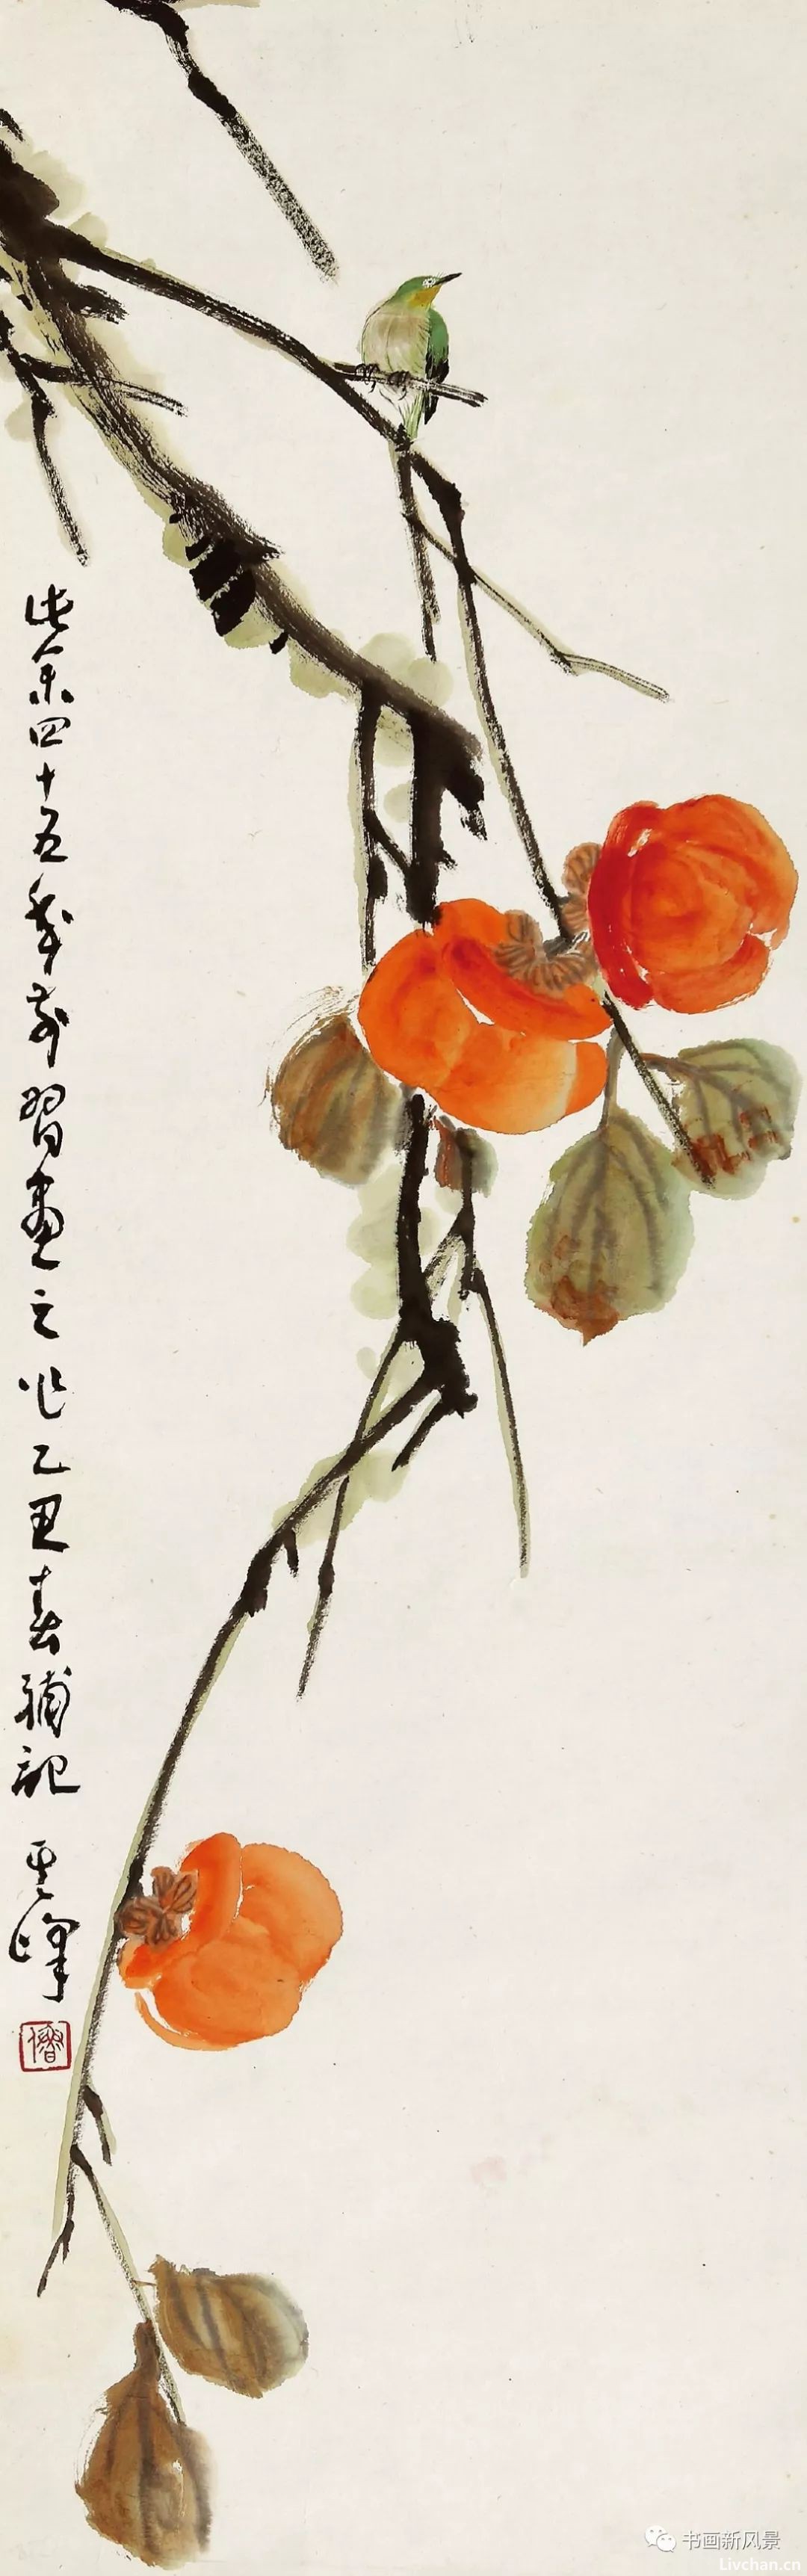 此余四十五年前習畫之作乙丑春補記
其峰
書画新风景
Livchan.cn